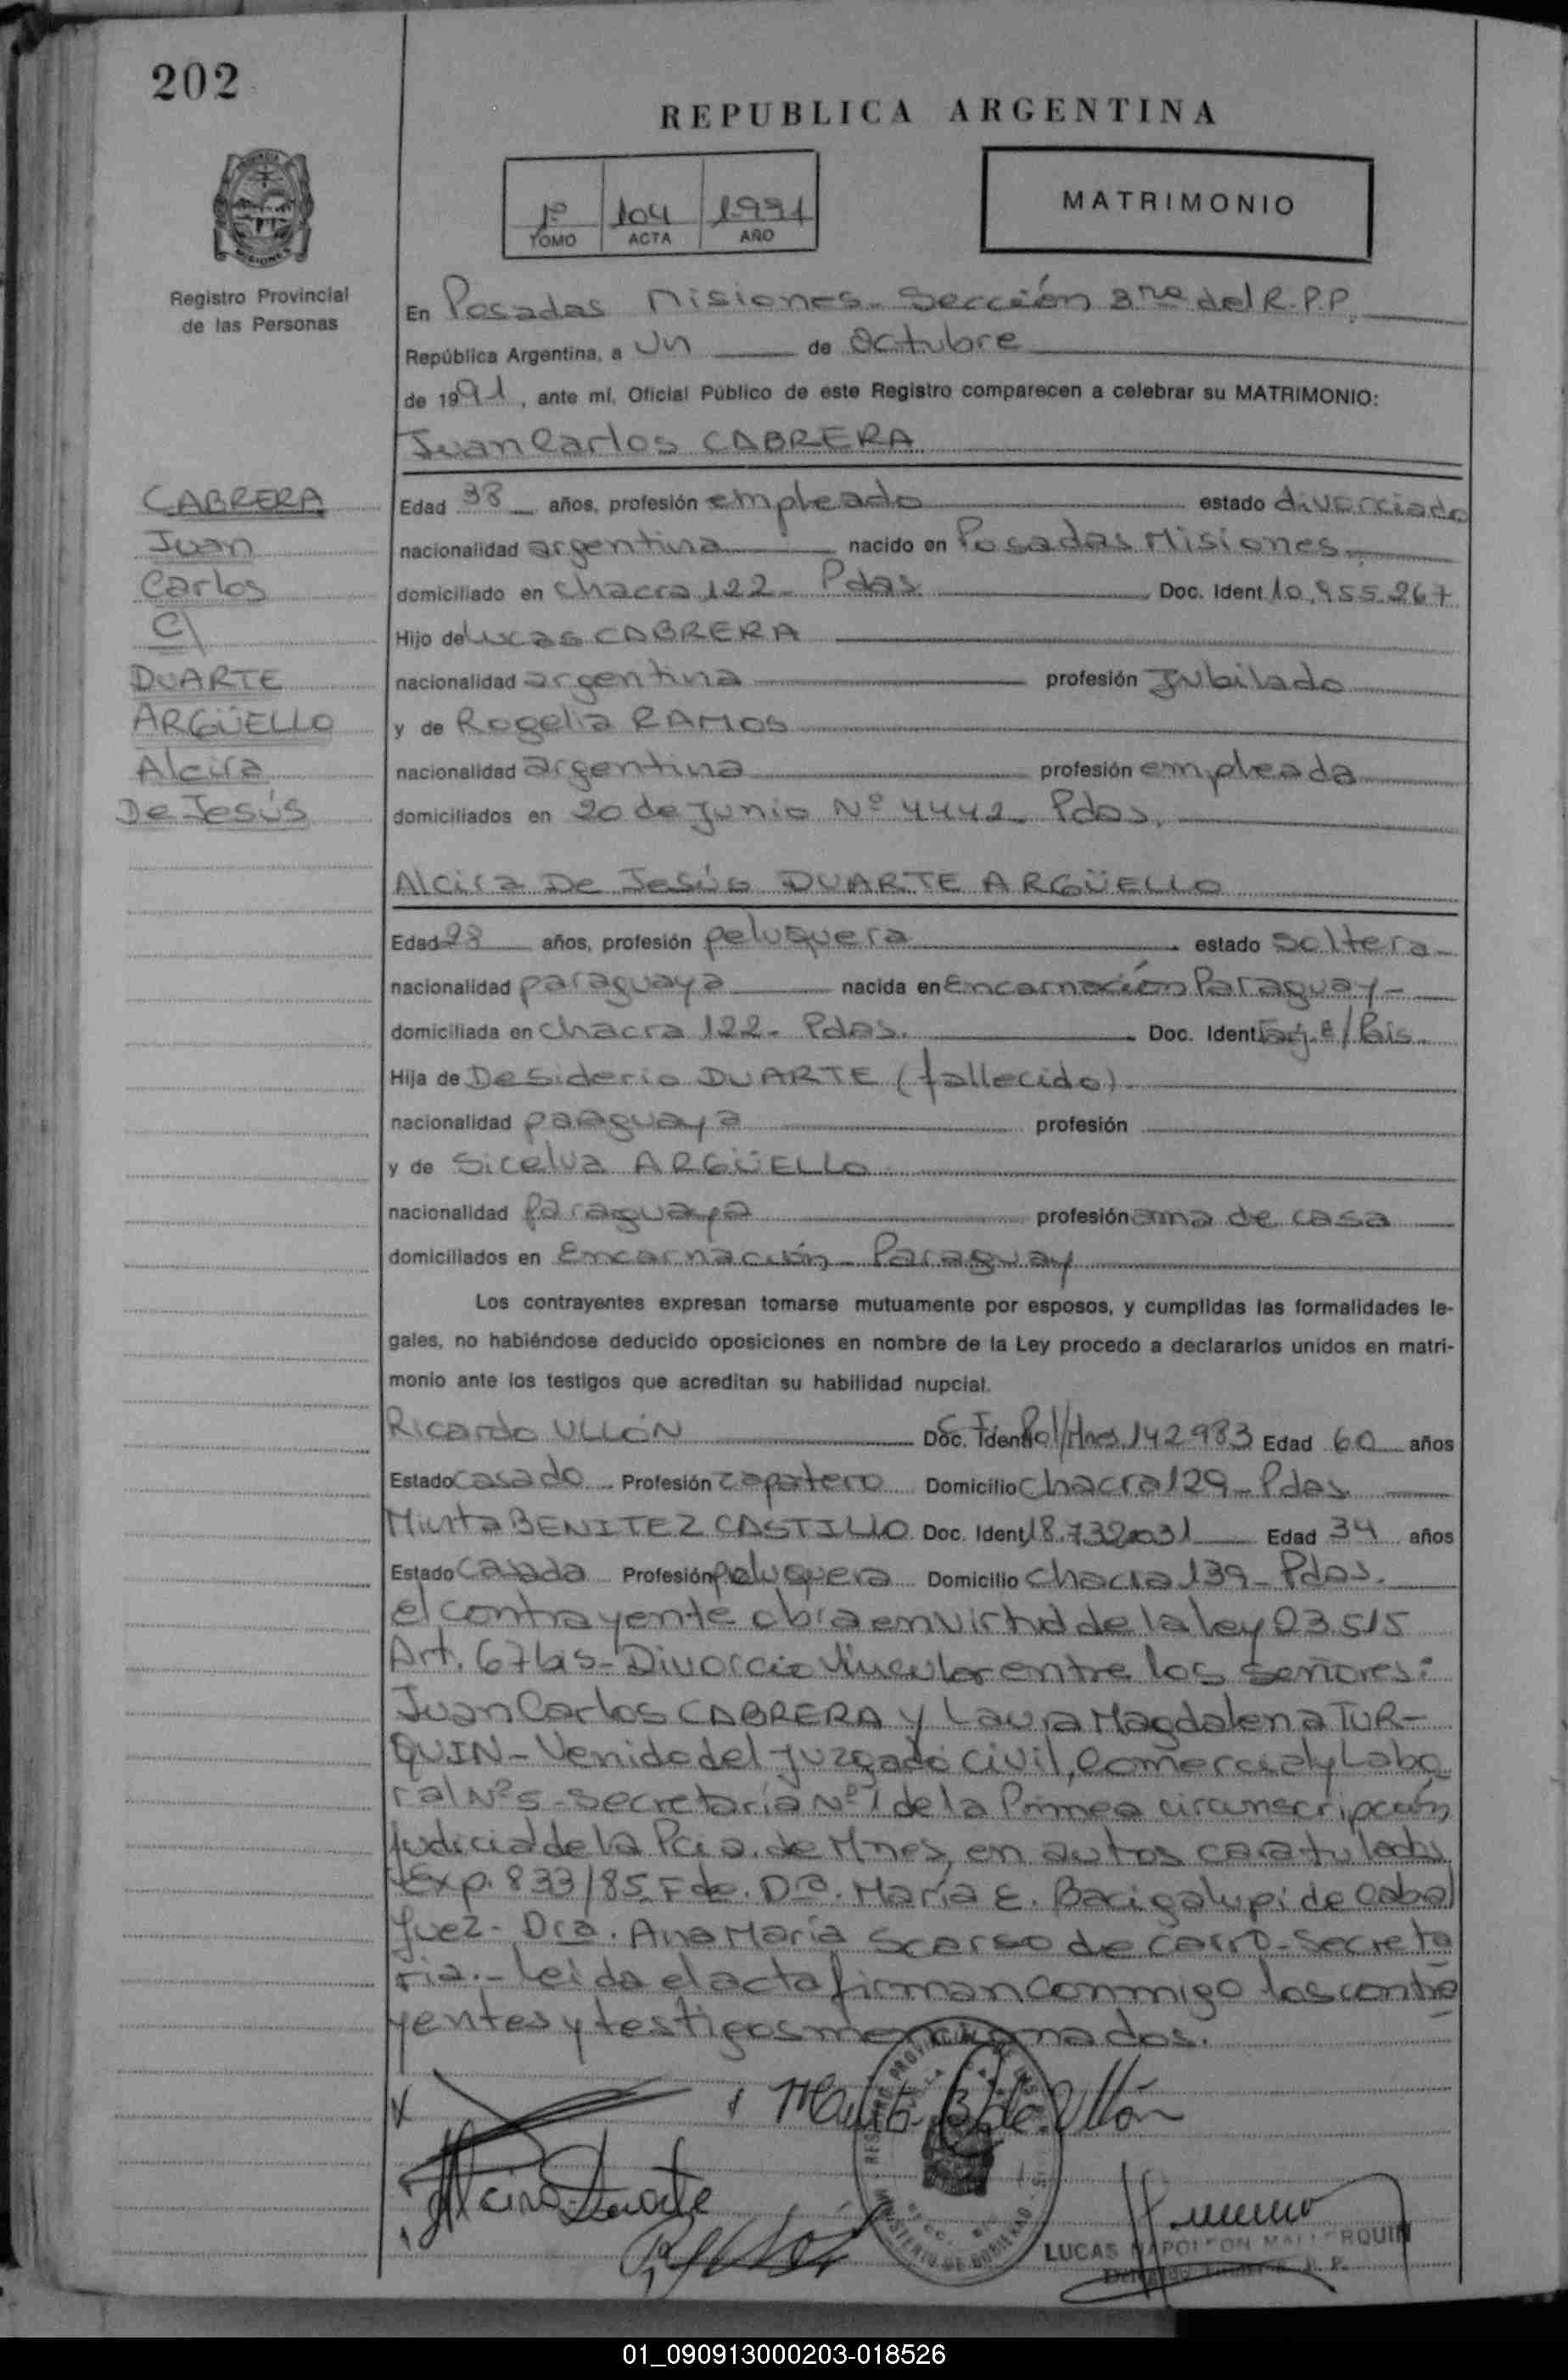 202
REPUBLICA ARGENTINA
1º 104 1991
TOMO ACTA AÑO
MATRIMONIO
Registro Provincial
de las Personas
En Posadas Misiones - Sección 3ra del R.P.P.
República Argentina, a Un de Octubre
de 1991, ante mí, Oficial Público de este Registro comparecen a celebrar su MATRIMONIO:
Juan Carlos CABRERA
CABRERA
Juan
Carlos
C/
DUARTE
ARGÜELLO
Alcira
De Jesús
Edad 38 años, profesión empleado estado divorciado
nacionalidad argentina nacido en Posadas Misiones
domiciliado en Chacra 122 - Pdas. Doc. Ident 10.955.267
Hijo de Lucas CABRERA
nacionalidad argentina profesión Jubilado
y de Rogelia RAMOS
nacionalidad argentina profesión empleada
domiciliados en 20 de Junio Nº 4442 - Pdas.
Alcira De Jesús DUARTE ARGÜELLO
Edad 28 años, profesión peluquera estado soltera
nacionalidad paraguaya nacida en Encarnación Paraguay -
domiciliada en Chacra 122 - Pdas. Doc. Ident
Hija de Desiderio DUARTE (fallecido)
nacionalidad paraguaya profesión
y de Sicelva ARGÜELLO
nacionalidad paraguaya profesión ama de casa
domiciliados en Encarnación - Paraguay
Los contrayentes expresan tomarse mutuamente por esposos, y cumplidas las formalidades le-
gales, no habiéndose deducido oposiciones en nombre de la Ley procedo a declararlos unidos en matri-
monio ante los testigos que acreditan su habilidad nupcial.
Ricardo ULLÓN Doc. Ident C.I. Pol/Mnes 142983 Edad 60 años
Estado casado Profesión zapatero Domicilio Chacra 129 - Pdas
BENITEZ CASTILLO Doc. Ident 18.732.031 Edad 34 años
Estado Casada Profesión peluquera Domicilio Chacra 139 - Pdas.
El contrayente obra en virtud de la ley 23.515
Art. 67 bis - Divorcio Vincular entre los Señores:
Juan Carlos CABRERA y Laura Magdalena TUR-
QUIN - Venido del Juzgado Civil, Comercial y Labo
ral Nº 5 - Secretaría Nº 1 de la Primea circunscripción
Judicial de la Pcia. de Mnes, en autos caratulados
Exp. 833/85 Fdo. Dra. María E. Bacigalupi de Cabal
Juez - Dra. Ana María de - Secreta
ria. - Leída el acta firman conmigo los contra
yentes y testigos mencionados.
Alcira Duarte
LUCAS NAPOLEON MALLORQUIN
01_090913000203-018526